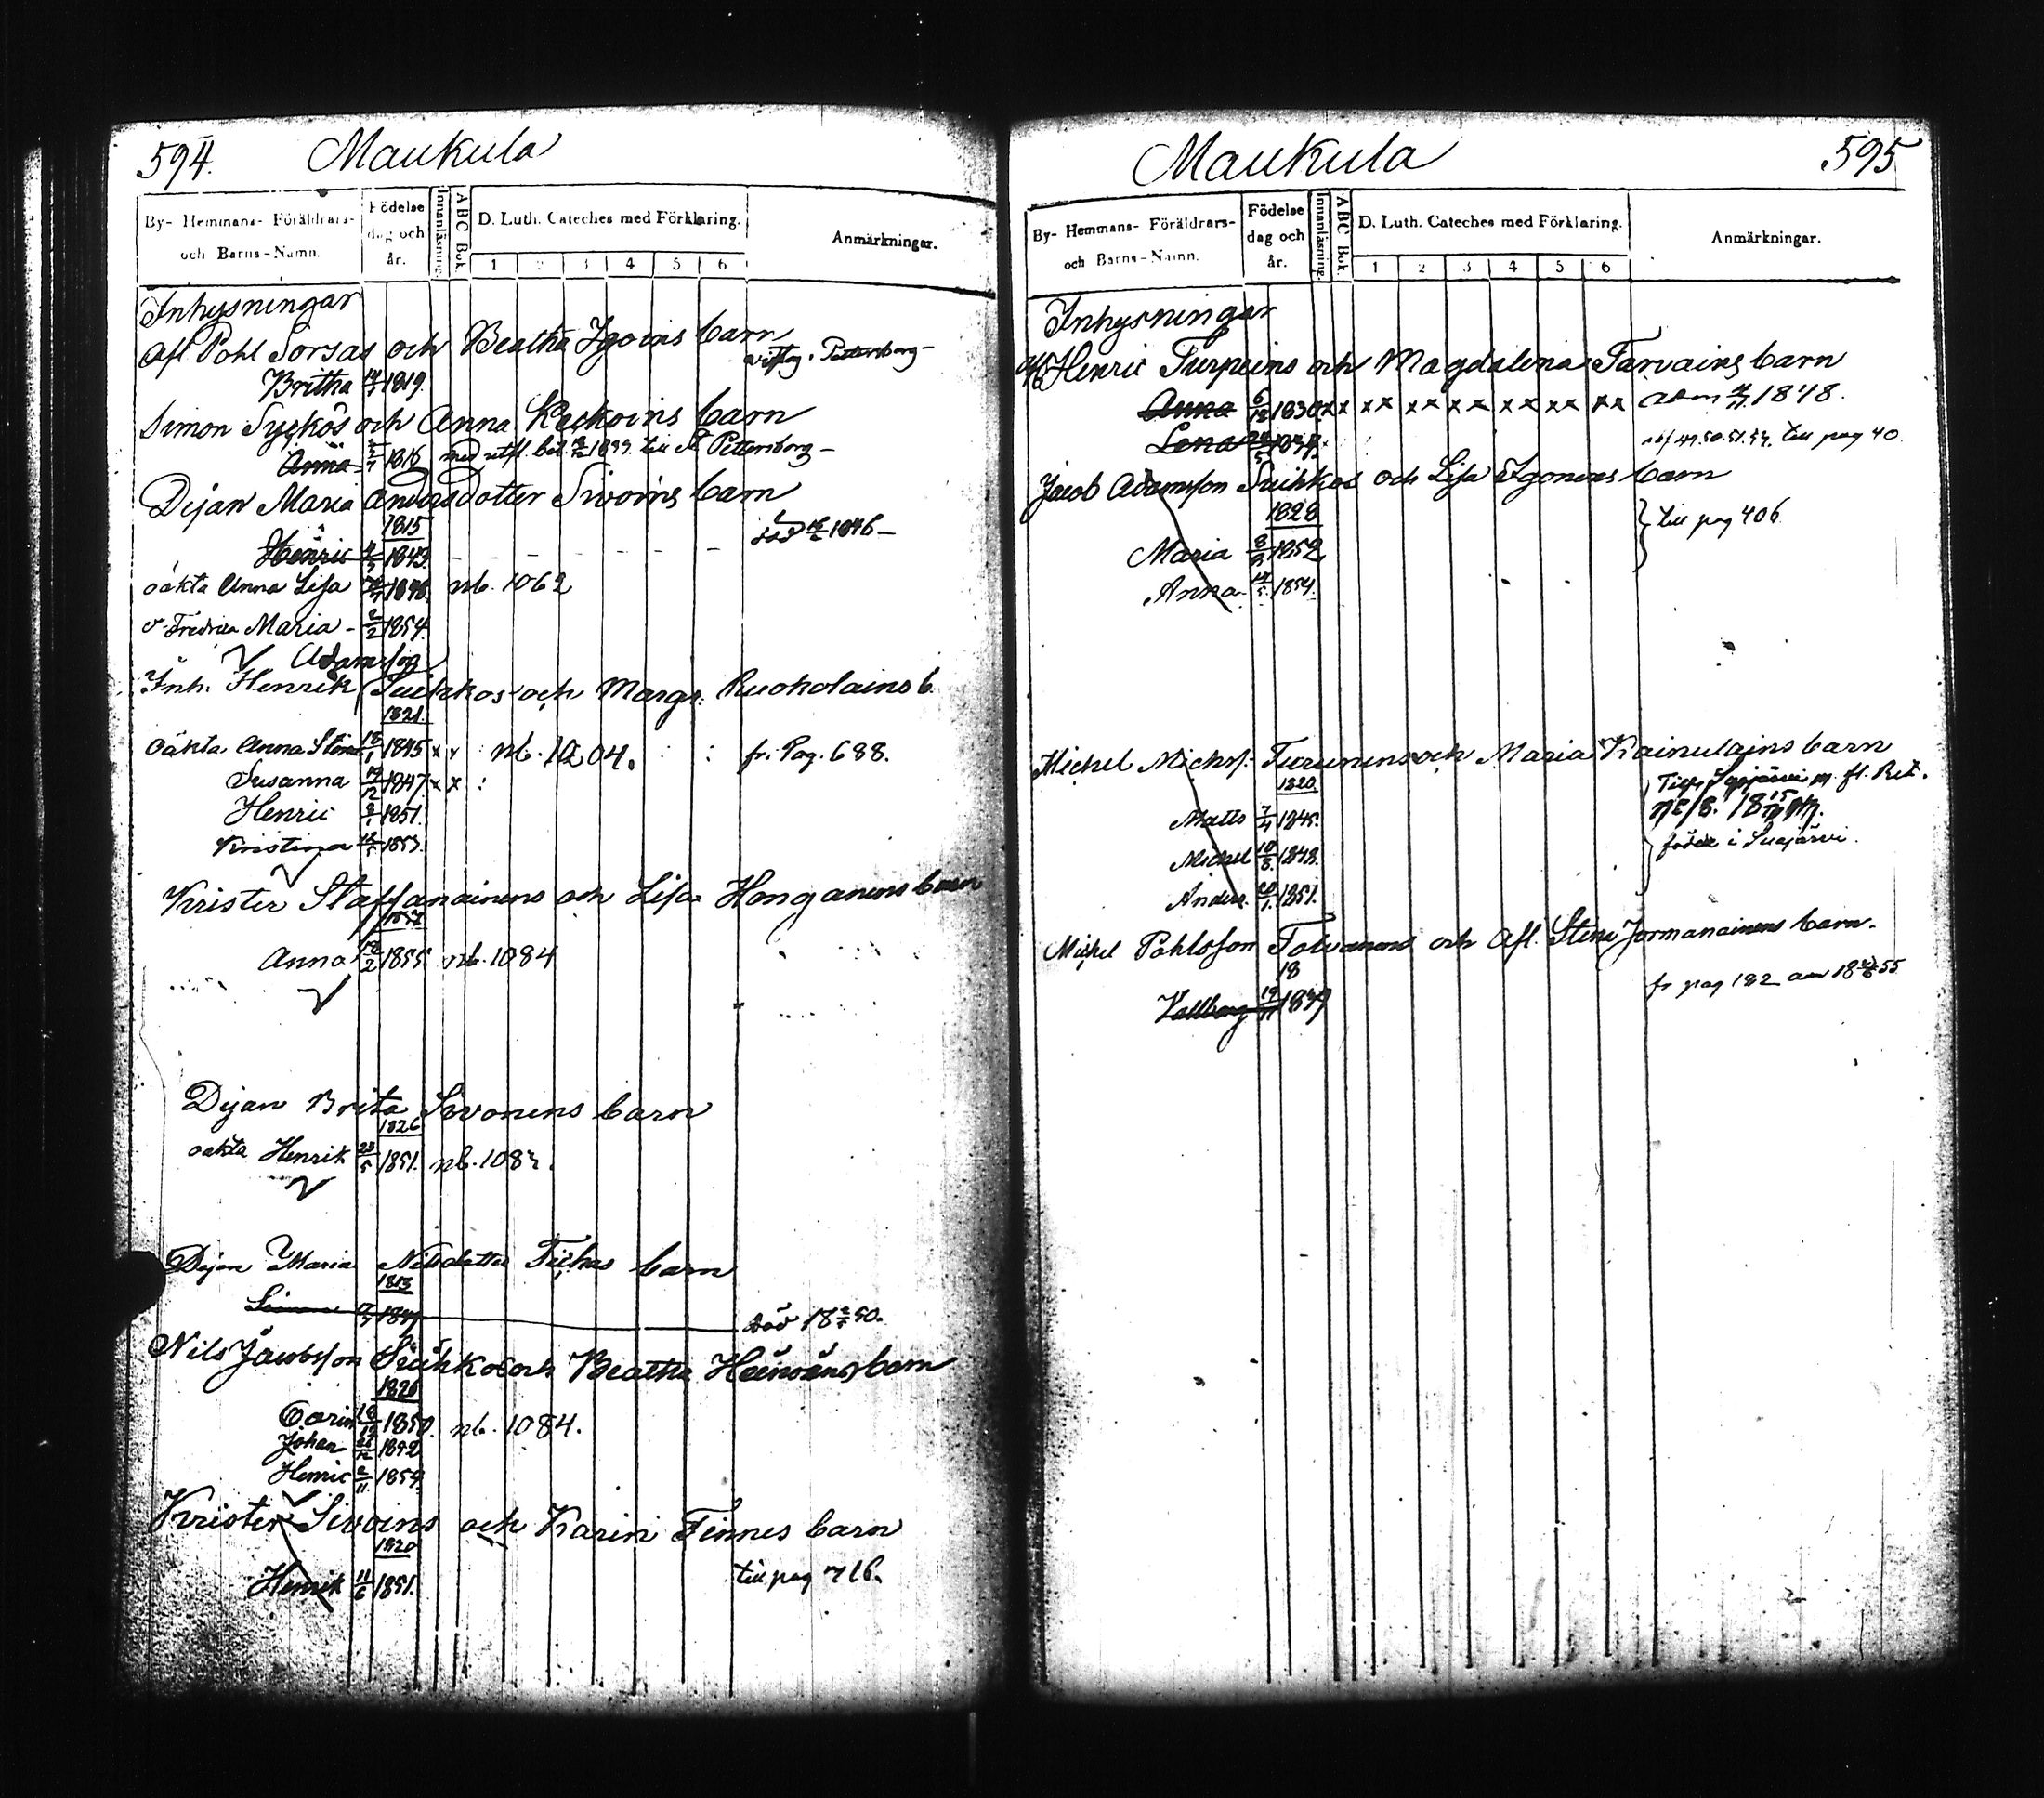 594. Maukula
By- Hemmans- Föräldrars- och Barns-Namn. Födelse dag och år. Innanläsning. ABC Bok. D. Luth. Cateches med Förklaring. 1 2 3 4 5 6 Anmärkningar.
Inhysningar
Afl Pohl Sorsas och Beatha Igoins barn
Britha 1819. Pettersborg
Simon Syckös och Anna Reckoins barn
Anna 1816 med till St Pettersborg
Dejan Maria Andersdotter Sivoins barn
1815
Henric 1843 död 1846
oäkta Anna Lisa 1848. nb. 1062
o Fredrika Maria 2/2 1854.
Adamsson
Inh. Henrik Suikkos och Margr. Ruokolains b.
1821.
oäkta Anna Stina 18/1 1845 x x nb. 1204. fr. Pag. 688.
Susanna 19/12 1847. x x
Henric 1851.
Kristina 1853.
Krister Staffanainens och Lisa Honganens barn
Anna 18/2 1855. nb. 1084
Dejan Brita Sivonens barn
1826
oäkta Henrik 23/5 1851. nb. 108
Dejan Maria Nilsdotter Tichas barn
1813
Simon död 18 50.
Nils Jacobsson Suihkos och Beatha Heiswäns barn
1826
Carin 18/12 1850. nb. 1084.
Johan 1852
Henric 2/11 1854
Krister Sivoins och Karin Finnes barn
1820
Henrik 11/6 1851. till pag 716.
Maukula 595
By- Hemmans- Föräldrars- och Barns-Namn. Födelse dag och år. Innanläsning. ABC Bok. D. Luth. Cateches med Förklaring. 1 2 3 4 5 6 Anmärkningar.
Inhysningar
Afl Henric Turpeins och Magdalena Tarvains barn
Anna 6/12 1830. x x x x x x x x x x x x x x 1848.
Lena 49.50.51. till pag 40.
Jacob Adamsson Suihkos och Lisa Igonens barn
1828
till pag 406
Maria 1852
Anna 1854.
Michel Michss. Turunens och Maria Kainulains barn
1820.
Matts 1845.
Michel 10/8 1848. födde i Suojärvi.
Anders. 20/1 1851.
Michel Pohlsson Tolvanens och Afl. Stina Jormanainens barn.
18
fr pag 182 18 55
Vallborg 19 1849